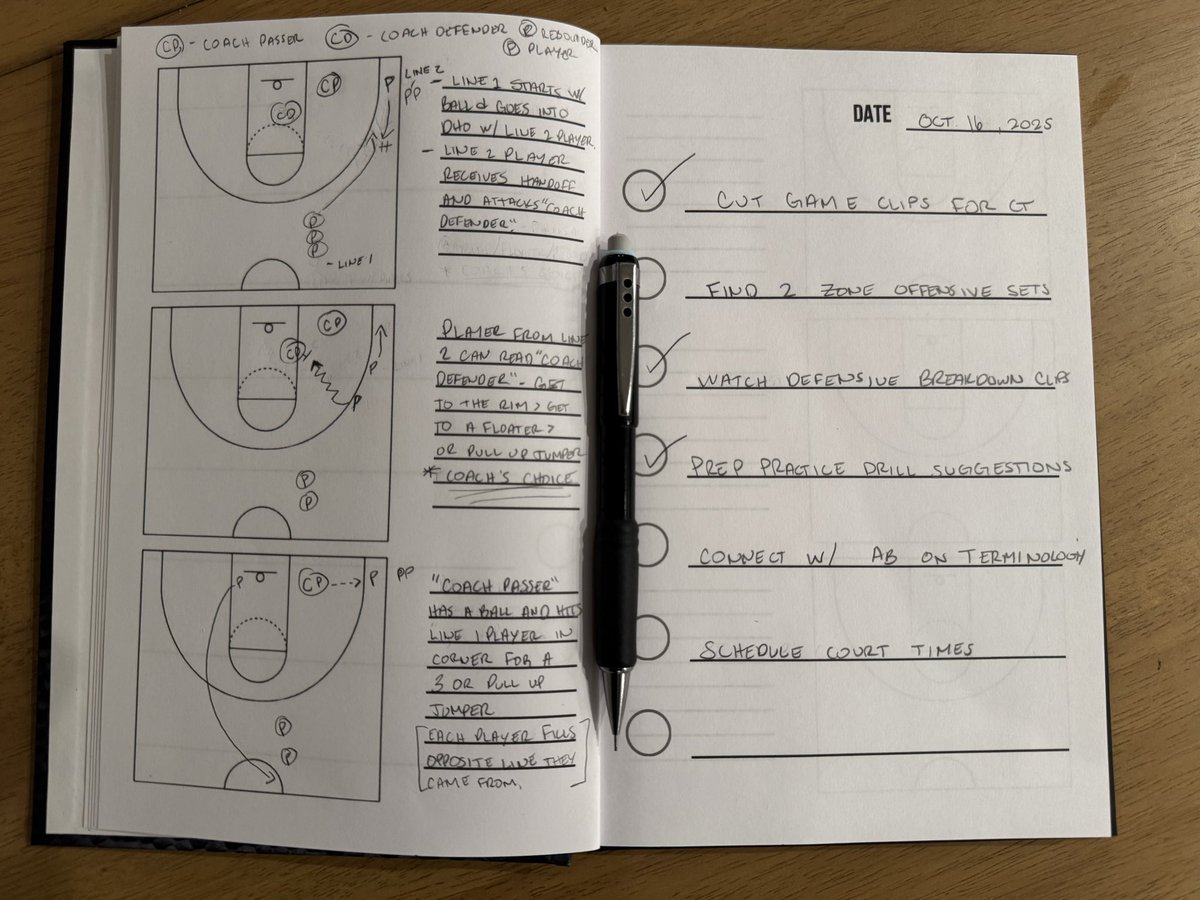 CP - COACH PASSER CD - COACH DEFENDER R REBOUNDER
P PLAYER
CP
P
LINE 2
PP
CD
H
P
P
P
- LINE 1
- LINE 1 STARTS W/
BALL & GOES INTO
DHO W/ LINE 2 PLAYER.
- LINE 2 PLAYER
RECEIVES HANDOFF
AND ATTACKS "COACH
DEFENDER".
CP
CD
P
P
P
P
PLAYER FROM LINE
2 CAN READ "COACH
DEFENDER" - GET
TO THE RIM > GET
TO A FLOATER >
OR PULL UP JUMPER
* COACH'S CHOICE
P
CP
P
PP
P
P
"COACH PASSER"
HAS A BALL AND HITS
LINE 1 PLAYER IN
CORNER FOR A
3 OR PULL UP
JUMPER
[EACH PLAYER FILLS
OPPOSITE LINE THEY
CAME FROM.]
DATE OCT 16, 2025
CUT GAME CLIPS FOR CT
FIND 2 ZONE OFFENSIVE SETS
WATCH DEFENSIVE BREAKDOWN CLIPS
PREP PRACTICE DRILL SUGGESTIONS
CONNECT W/ AB ON TERMINOLOGY
SCHEDULE COURT TIMES